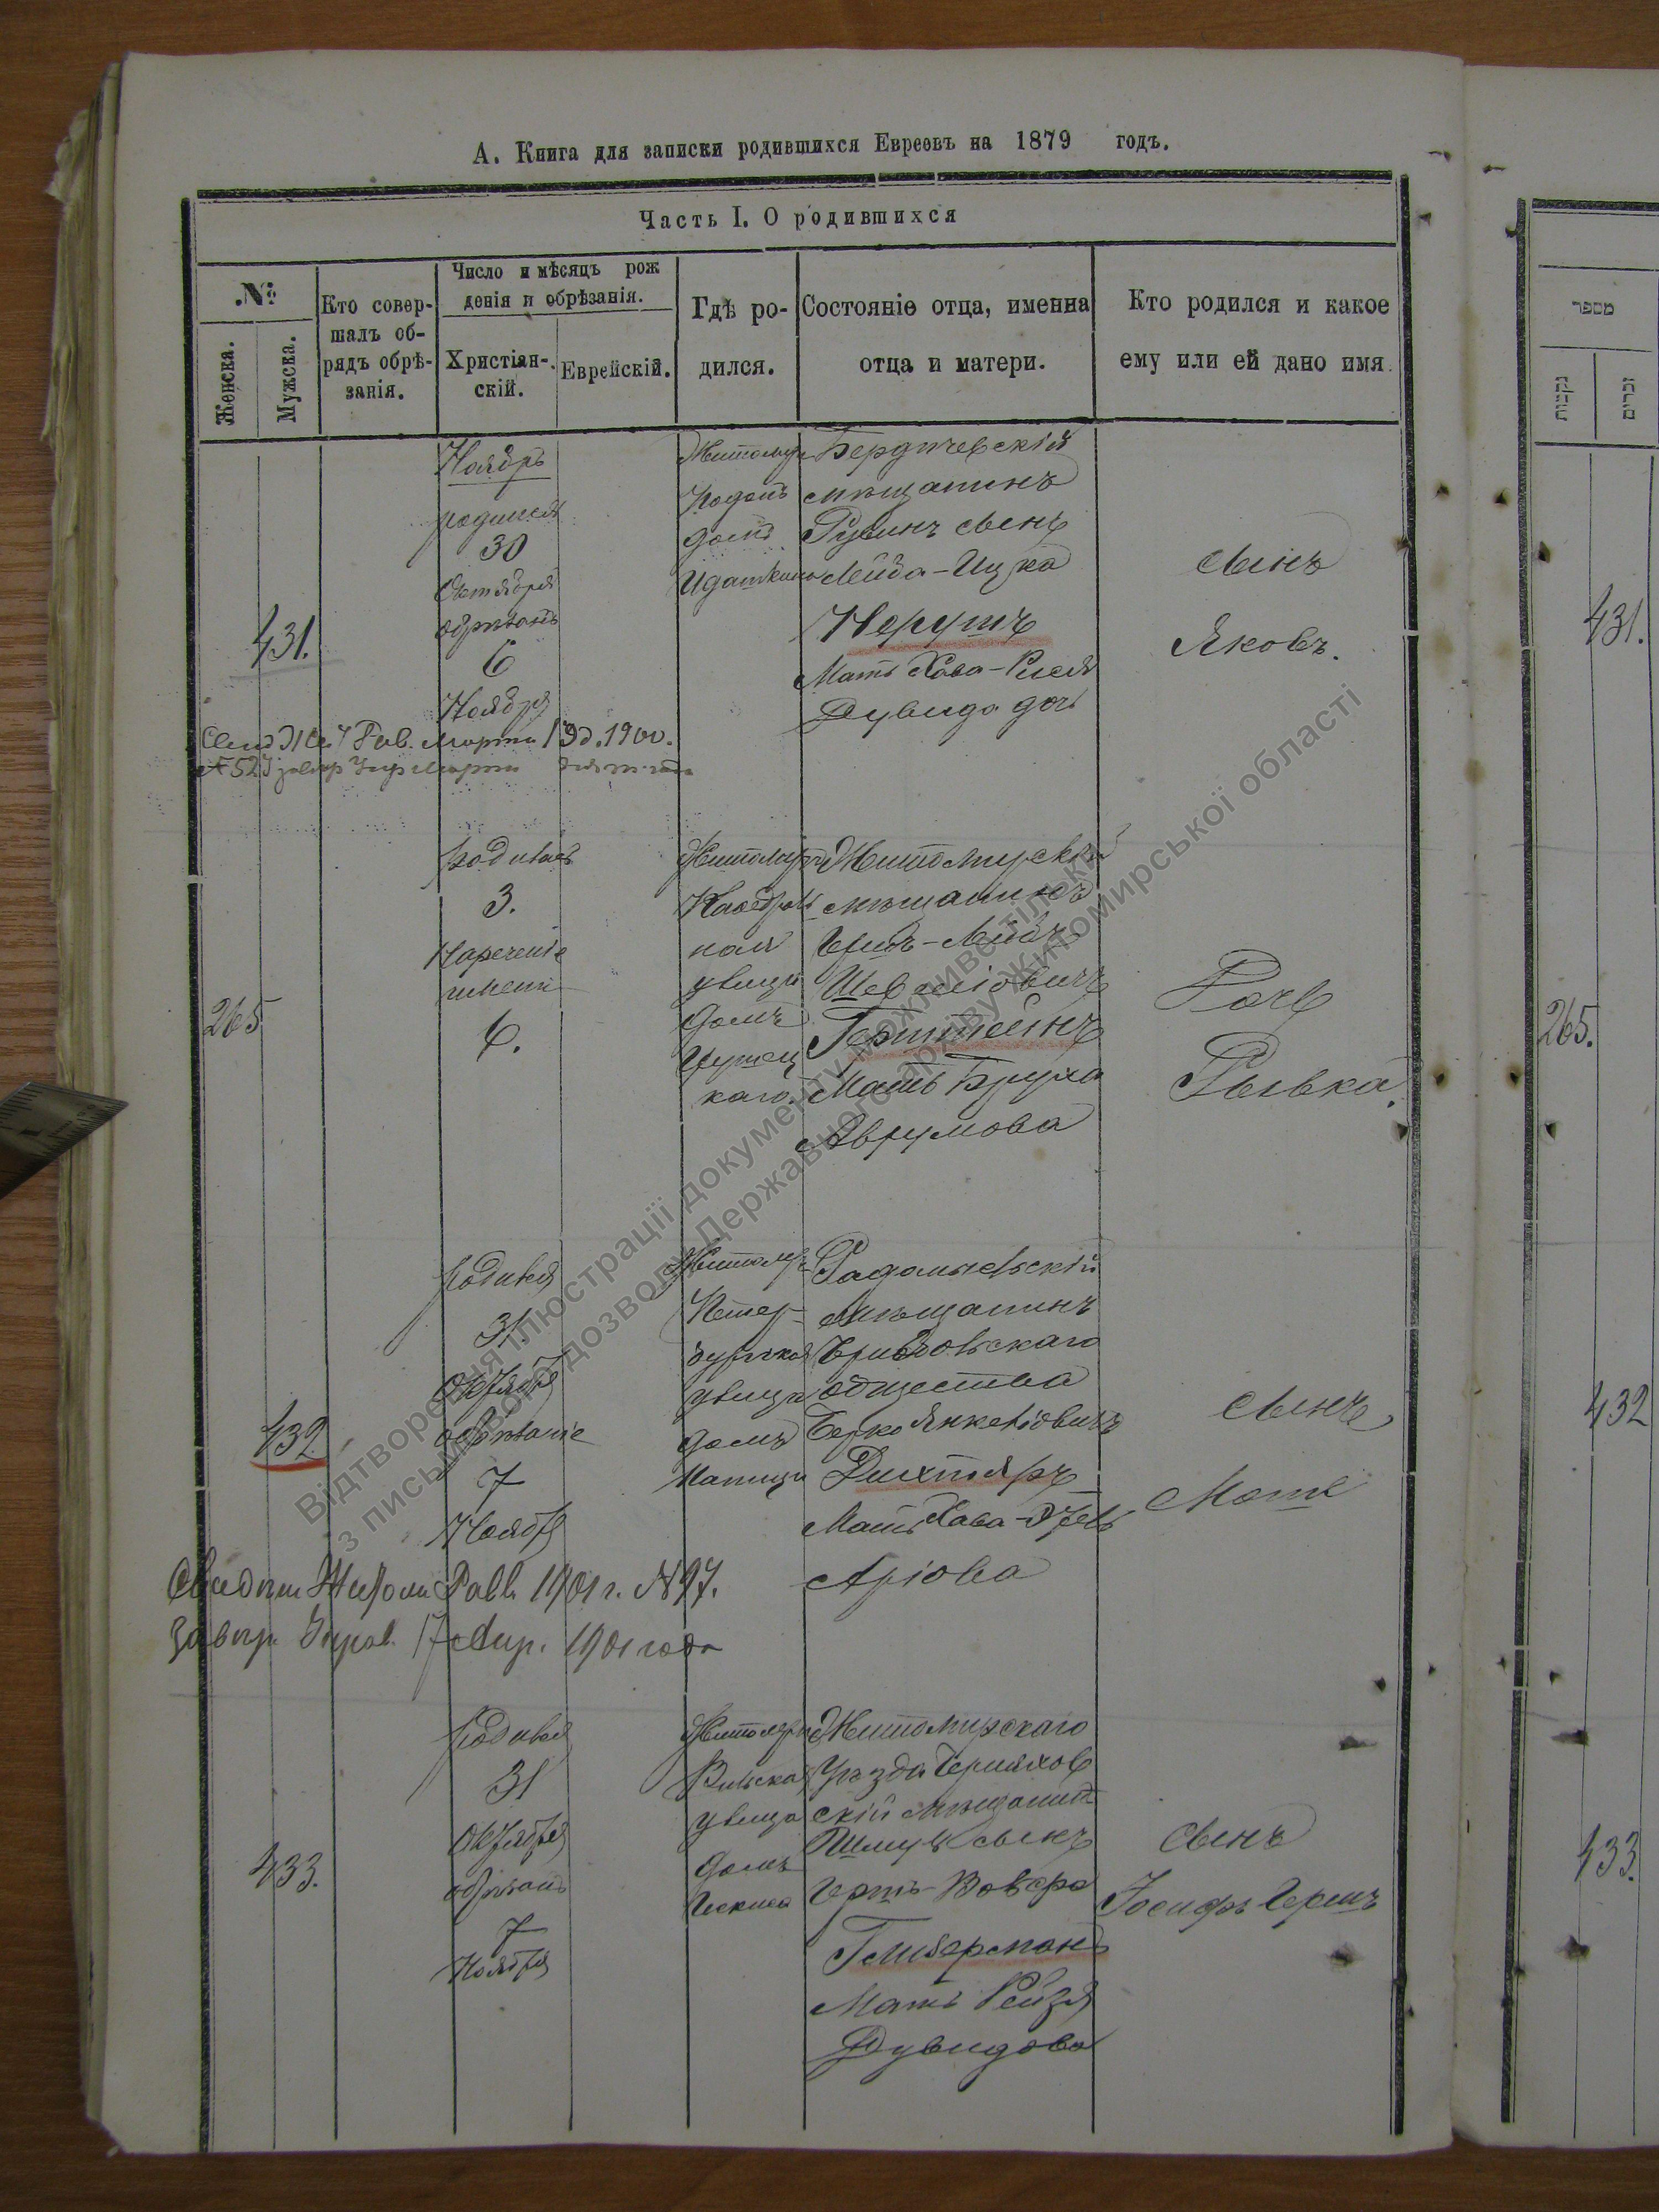 А. Книга для записки родившихся Евреевъ на 1879 годъ.
Часть I. О родившихся
№
Женска.
Мужска.
Кто совер-
шалъ об-
рядъ обрѣ-
занія.
Число и мѣсяцъ рож
денія и обрѣзанія.
Христіан-
скій.
Еврейскій.
Гдѣ ро-
дился.
Состояніе отца, именна
отца и матери.
Кто родился и какое
ему или ей дано имя.
431.
Ноябрь
родился
30
Октября
обрѣзанъ
6
Ноября
Житомир
домъ
Бердичевскій
мѣщанинъ
Рувинъ сынъ
Лейба-Ицка
Мать Хава-
Дувида дочь
Сынъ
Яковъ.
Рав. Марта 1900.
265
родилась
3.
Нареченіе
имени
6.
Житомиръ
Кафедраль
ная
улица
домъ
каго.
Житомирскій
мѣщанинъ
Гершъ-Лейбъ
Герштейнъ
Мать Бруха
Аврумова
Дочь
Рывка.
432
родился
31.
Октября
обрѣзаніе
7
Ноября
Житомир
Петер-
бургская
улица
домъ
Радомысльскій
мѣщанинъ
общества
Берко Янкеліовичъ
Дихтяръ
Мать Хава-
Аріова
Сынъ
Мотя
Свидѣт Житом Равв. 1901 г. № 97.
Завѣр. Управ. 17 Апр. 1901 года
433.
родился
31
Октября
обрѣзанъ
7
Ноября
Житомиръ
Вильская
улица
домъ
Житомирскаго
Уѣзда Черняхов
скій мѣщанинъ
Шмуль сынъ
Гершъ-Вовера
Гликерманъ
Мать Рейзя
Дувидова
Сынъ
Іосифъ Гершъ
מספר
נקבות
זכרים
431.
265.
432
433.
Відтворення ілюстрації документу можливе тільки
з письмового дозволу Державного архіву Житомирської області